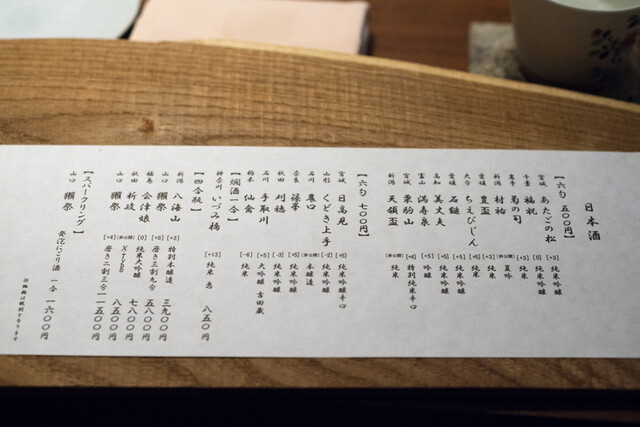 日本酒
【六勺 五〇〇円】
宮城 あたごの松 [+3] 純米吟醸
千葉 福祝 [0] 純米吟醸
岩手 菊の司 [+3] 純米吟醸
新潟 村祐 [非公開] 夏吟
愛媛 豊盃 純米
大分 ちえびじん [+3] 純米
愛媛 石鎚 純米吟醸
高知 美丈夫 純米
富山 満寿泉 [+5] 吟醸
宮城 栗駒山 [+4] 特別純米辛口
新潟 天領盃 [非公開] 純米
【六勺 七〇〇円】
宮城 日高見 [+5] 純米吟醸辛口
山形 くどき上手 [-2] 純米吟醸
石川 農口 [非公開] 本醸造
奈良 篠峯 [+5] 純米吟醸
秋田 刈穂 [-3] 純米吟醸
石川 手取川 [+5] 大吟醸 吉田蔵
栃木 仙禽 [-6] 純米
【燗酒一合】
神奈川 いづみ橋 [+13] 純米 恵 八五〇円
【四合瓶】
新潟 八海山 [+3] 特別本醸造 三九〇〇円
山口 獺祭 [+6] 磨き三割九分 五八〇〇円
福島 会津娘 [0] 純米大吟醸 七八〇〇円
秋田 新政 [非公開] X-type 八五〇〇円
山口 獺祭 [+4] 磨き二割三分 一一五〇〇円
【スパークリング】
山口 獺祭 発泡にごり酒 一合 一六〇〇円
※価格は税別となります